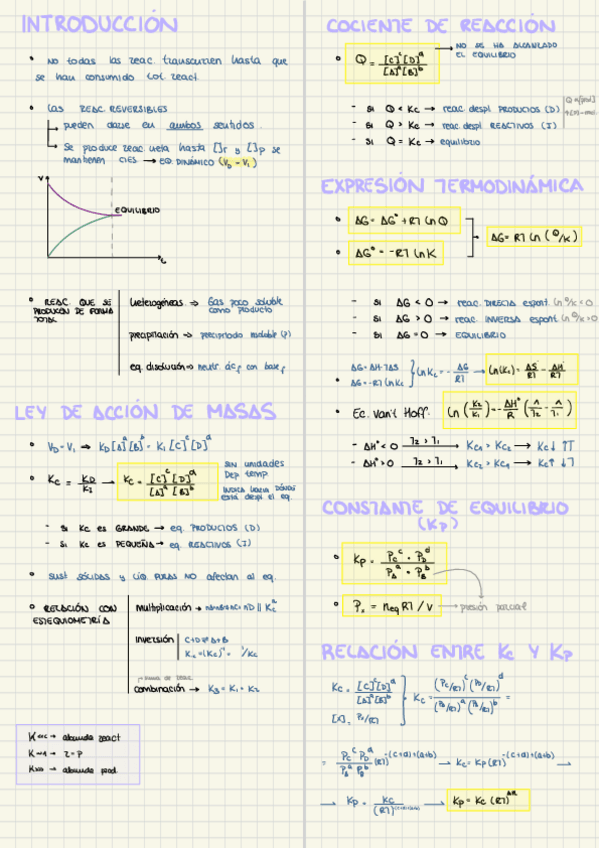 INTRODUCCIÓN
• NO todas las reac. transcurren hasta que
se han consumido los react.
• las REAC. REVERSIBLES
pueden darse en ambos sentidos.
se produce reac. neta hasta []r y []p se
mantienen ctes → eq. DINÁMICO (VD = VI)
V
EQUILIBRIO
t
• REAC. QUE SE
PRODUCEN DE FORMA
TOTAL
heterogéneas → Gas poco soluble
como producto
precipitación → precipitado insoluble (↓)
eq. disolución → neutr. ác.F con base F
LEY DE ACCIÓN DE MASAS
• VD = VI → KD [A]^a [B]^b = KI [C]^c [D]^d
• Kc = KD/KI → Kc = [C]^c [D]^d / [A]^a [B]^b
SIN unidades
Dep temp.
INDICA HACIA DÓNDE
ESTÁ despl el eq.
- Si Kc es GRANDE → eq. PRODUCTOS (D)
- Si Kc es PEQUEÑA → eq. REACTIVOS (I)
• SUST SÓLIDAS y LÍQ. PURAS NO afectan al eq.
• RELACIÓN CON
ESTEQUIOMETRÍA
multiplicación →
inversión
C+D ⇌ A+B
combinación → K3 = K1 · K2
K<<< → abunda react
K~1 → r=p
K>>> → abunda prod
COCIENTE DE REACCIÓN
• Q = [C]^c [D]^d / [A]^a [B]^b
→ NO SE HA ALCANZADO
EL EQUILIBRIO
- Si Q < Kc → reac. despl PRODUCTOS (D)
- Si Q > Kc → reac. despl REACTIVOS (I)
- Si Q = Kc → equilibrio
EXPRESIÓN TERMODINÁMICA
• ΔG = ΔG° + RT ln Q
• ΔG° = -RT ln K
ΔG = RT ln (Q/K)
- Si ΔG < 0 → reac. DIRECTA espont. ln Q/K < 0
- Si ΔG > 0 → reac. INVERSA espont. ln Q/K > 0
- Si ΔG = 0 → EQUILIBRIO
• ΔG = ΔH - TΔS
ΔG = -RT ln Kc
ln Kc = - ΔG/RT → ln(Kc) = ΔS/R - ΔH/RT
• Ec. Van't Hoff. ln (K2/K1) = - ΔH°/R (1/T2 - 1/T1)
- ΔH° < 0 T2 > T1 → Kc1 > Kc2 → Kc↓ ↑T
- ΔH° > 0 T2 > T1 → Kc2 > Kc1 → Kc↑
CONSTANTE DE EQUILIBRIO
(Kp)
• Kp = Pc^c · PD^d / PA^a · PB^b
• Px = neq RT / V → presión parcial
RELACIÓN ENTRE Kc Y Kp
Kc = [C]^c [D]^d / [A]^a [B]^b
[X] = Px/RT
Kc = (Pc/RT)^c (PD/RT)^d / (PA/RT)^a (PB/RT)^b =
= Pc^c PD^d / PA^a PB^b (RT)^-(c+d)+(a+b) → Kc = Kp (RT)^-(c+d)+(a+b) →
→ Kp = → Kp = Kc (RT)^Δn